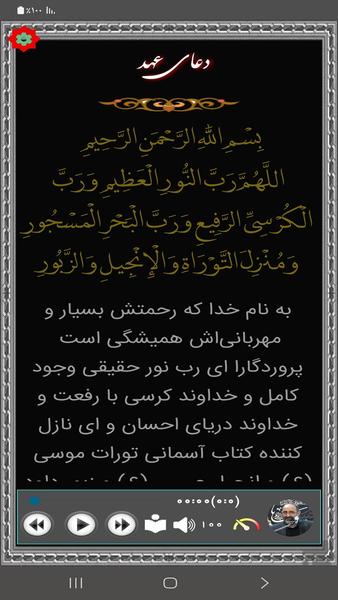 ٪۱۰۰
دعای عهد
بِسْمِ اللهِ الرَّحْمَنِ الرَّحِيمِ
اللَّهُمَّ رَبَّ النُّورِ الْعَظِيمِ وَ رَبَّ
الْكُرْسِيِّ الرَّفِيعِ وَ رَبَّ الْبَحْرِ الْمَسْجُورِ
وَ مُنْزِلَ التَّوْرَاةِ وَ الْإِنْجِيلِ وَ الزَّبُورِ
به نام خدا که رحمتش بسیار و
مهربانی‌اش همیشگی است
پروردگارا ای رب نور حقیقی وجود
کامل و خداوند کرسی با رفعت و
خداوند دریای احسان و ای نازل
کننده کتاب آسمانی تورات موسی
۰۰:۰۰(۰:۰)
۱۰۰